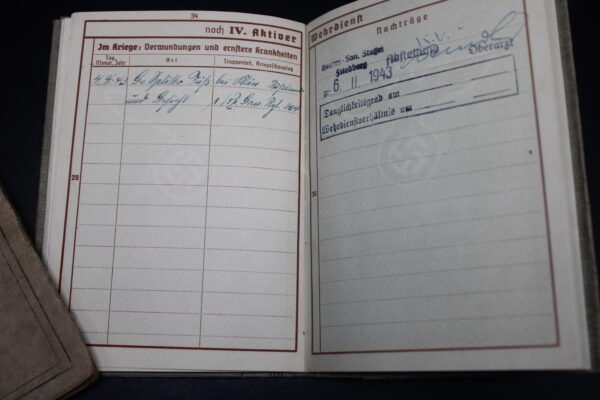 34
noch IV. Aktiver
Im Kriege: Verwundungen und ernstere Krankheiten
Tag, Monat, Jahr
Art
Truppenteil, Kriegsschauplatz
4.9.43 Gr. Splitter Füße bei
und Gesicht
29
Wehrdienst
Nachträge
K.v.
San. Staffel
Friedberg Abstellung
6. II. 1943 Oberarzt
Tauglichkeitsgrad am
Wehrdienstverhältnis am
30